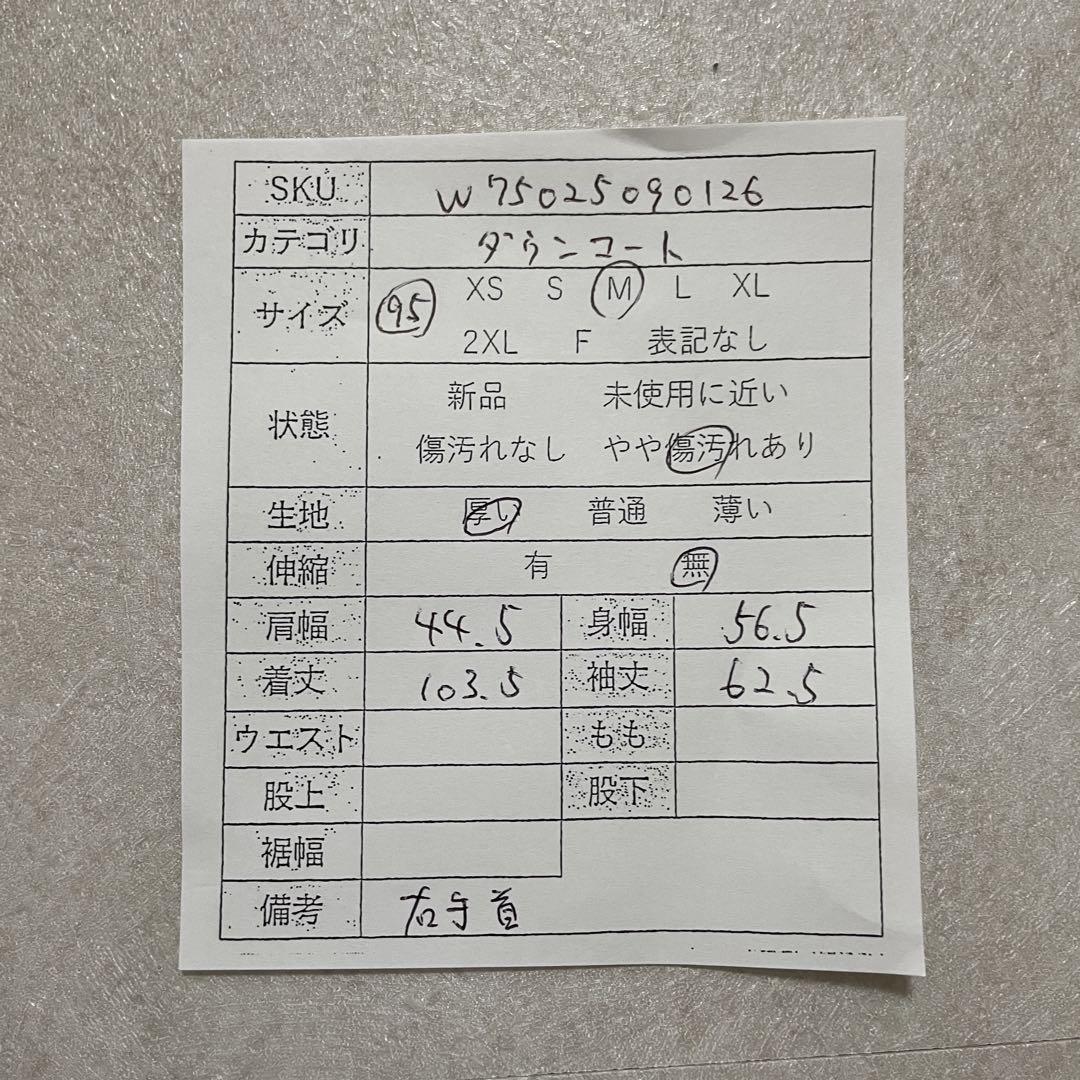 SKU W75025090126
カテゴリ ダウンコート
サイズ 95 XS S M L XL
2XL F 表記なし
状態 新品 未使用に近い
傷汚れなし やや傷汚れあり
生地 厚い 普通 薄い
伸縮 有 無
肩幅 44.5 身幅 56.5
着丈 103.5 袖丈 62.5
ウエスト もも
股上 股下
裾幅
備考 右手首